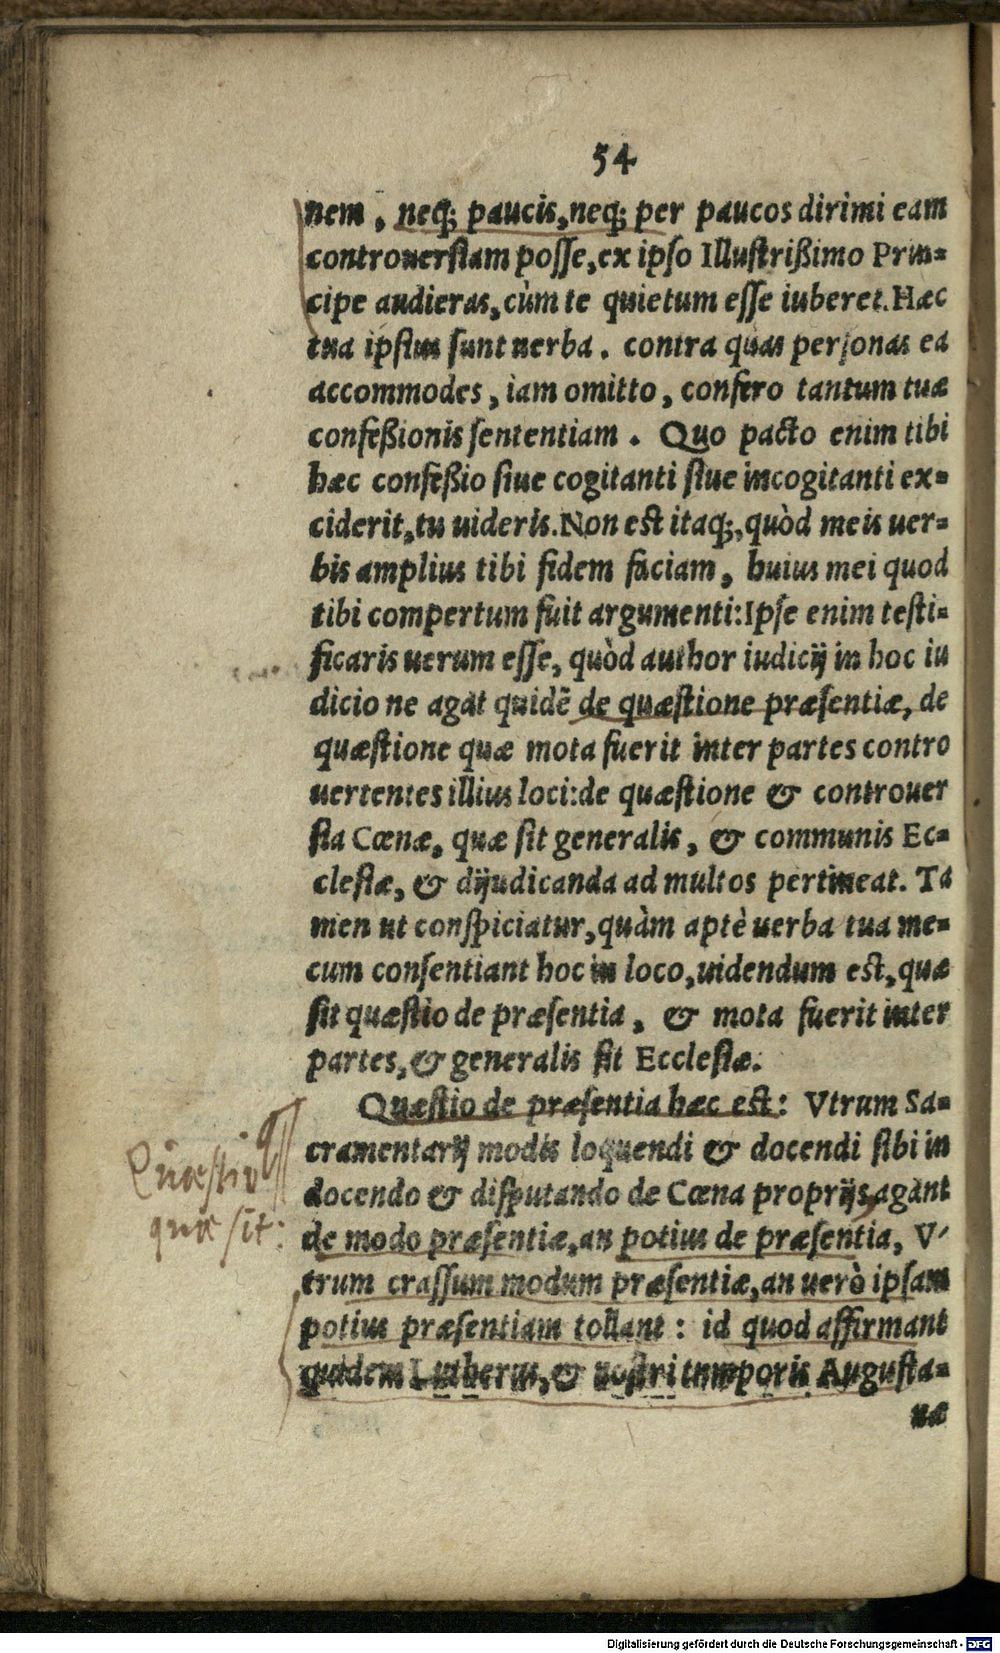 54
nem, neq; paucis, neq; per paucos dirimi eam
controuersiam posse, ex ipso Illustrißimo Prin=
cipe audieras, cùm te quietum esse iuberet. Hæc
tua ipsius sunt uerba. contra quas personas ea
accommodes, iam omitto, confero tantum tuæ
confeßionis sententiam. Quo pacto enim tibi
hæc confeßio siue cogitanti siue incogitanti ex=
ciderit, tu uideris. Non est itaq;, quòd meis uer=
bis amplius tibi fidem faciam, huius mei quod
tibi compertum fuit argumenti: Ipse enim testi=
ficaris uerum esse, quòd author iudicij in hoc iu
dicio ne agat quidē de quæstione præsentiæ, de
quæstione quæ mota fuerit inter partes contro
uertentes illius loci: de quæstione & controuer
sia Cœnæ, quæ sit generalis, & communis Ec=
clesiæ, & dijudicanda ad multos pertineat. Ta
men ut conspiciatur, quàm aptè uerba tua me=
cum consentiant hoc in loco, uidendum est, quæ
sit quæstio de præsentia, & mota fuerit inter
partes, & generalis sit Ecclesiæ.
Quæstio de præsentia hæc est: Vtrum Sa=
cramentarij modis loquendi & docendi sibi in
docendo & disputando de Cœna proprijs agant
de modo præsentiæ, an potius de præsentia, V=
trum crassum modum præsentiæ, an uerò ipsam
potius præsentiam tollant: id quod affirmant
quidem Lutherus, & nostri temporis Augusta=
næ
Quæstio
quæ sit:
Digitalisierung gefördert durch die Deutsche Forschungsgemeinschaft - DFG